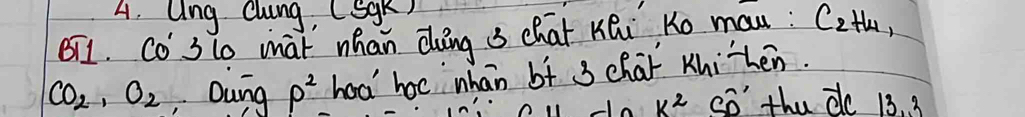 4. Ứng dụng. (Sgk)
BT1. Có 3 lọ mất nhãn đựng 3 chất khí ko màu: C2H4,
CO2, O2. Dùng p² hoá học nhận bt 3 chất khí trên.
k² số thu đc 13,3